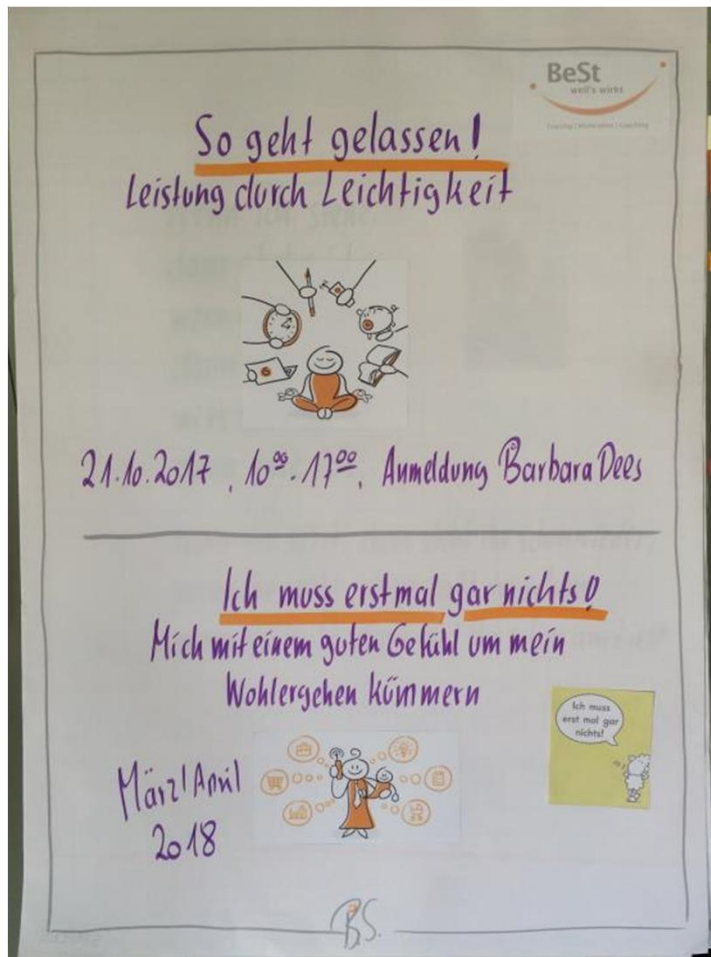 BeSt
weil's wirkt
Training | Moderation | Coaching
So geht gelassen!
Leistung durch Leichtigkeit
21.10.2017, 10⁰⁰-17⁰⁰, Anmeldung Barbara Dees
Ich muss erstmal gar nichts!
Mich mit einem guten Gefühl um mein
Wohlergehen kümmern
Ich muss
erst mal gar
nichts!
März/April
2018
B.S.